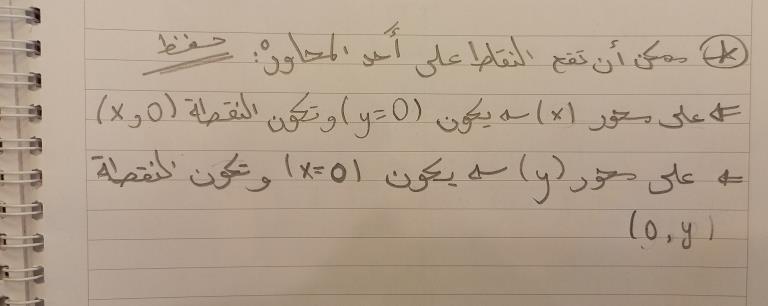 * يمكن أن تقع النقاط على أحد المحاور: حفظ
⇐ على محور (x) ← يكون (y=0) وتكون النقطة (x,0)
⇐ على محور (y) ← يكون (x=0) وتكون النقطة
(0,y)